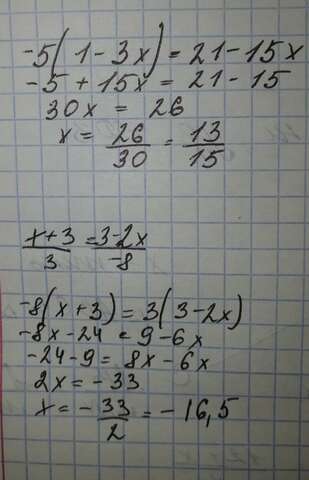 -5(1-3x)=21-15x
-5+15x=21-15
30x=26
x=26/30=13/15
x+3/3=3-2x/-8
-8(x+3)=3(3-2x)
-8x-24=9-6x
-24-9=8x-6x
2x=-33
x=-33/2=-16,5